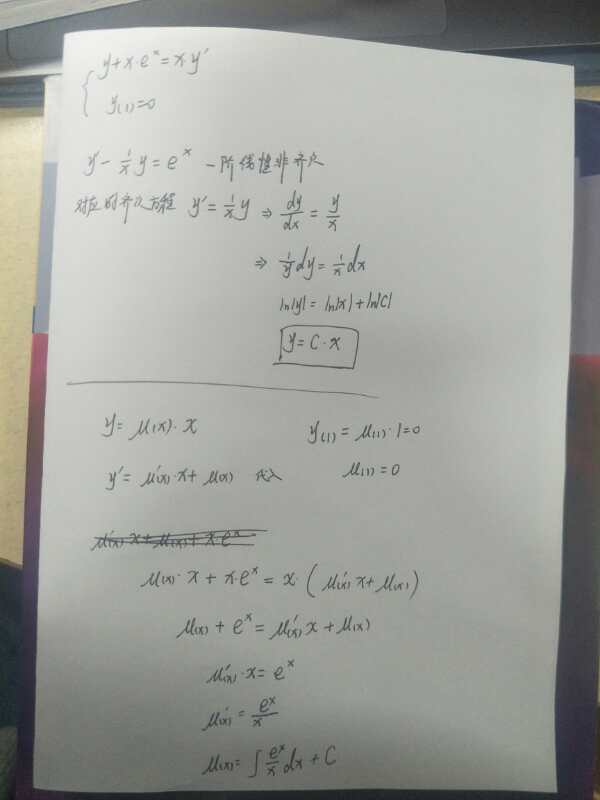 { y+x·eˣ=x·y′
y(1)=0
y′-1/x y=eˣ 一阶线性非齐次
对应的齐次方程 y′=1/x y ⇒ dy/dx = y/x
⇒ 1/y dy=1/x dx
ln|y|= ln|x|+ln|C|
y=C·x
y= μ(x)·x y(1)=μ(1)·1=0
y′= μ′(x)·x+μ(x) 代入 μ(1)=0
μ′(x)·x+μ(x)+x·eˣ
μ(x)·x+x·eˣ=x·(μ′(x)·x+μ(x))
μ(x)+eˣ=μ′(x)x+μ(x)
μ′(x)·x=eˣ
μ′(x)=eˣ/x
μ(x)=∫eˣ/x dx+C